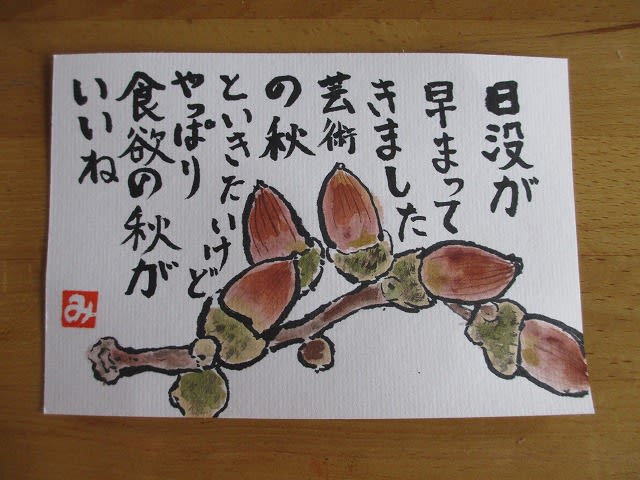 日没が
早まって
きました
芸術
の秋
といきたいけど
やっぱり
食欲の秋が
いいね
み